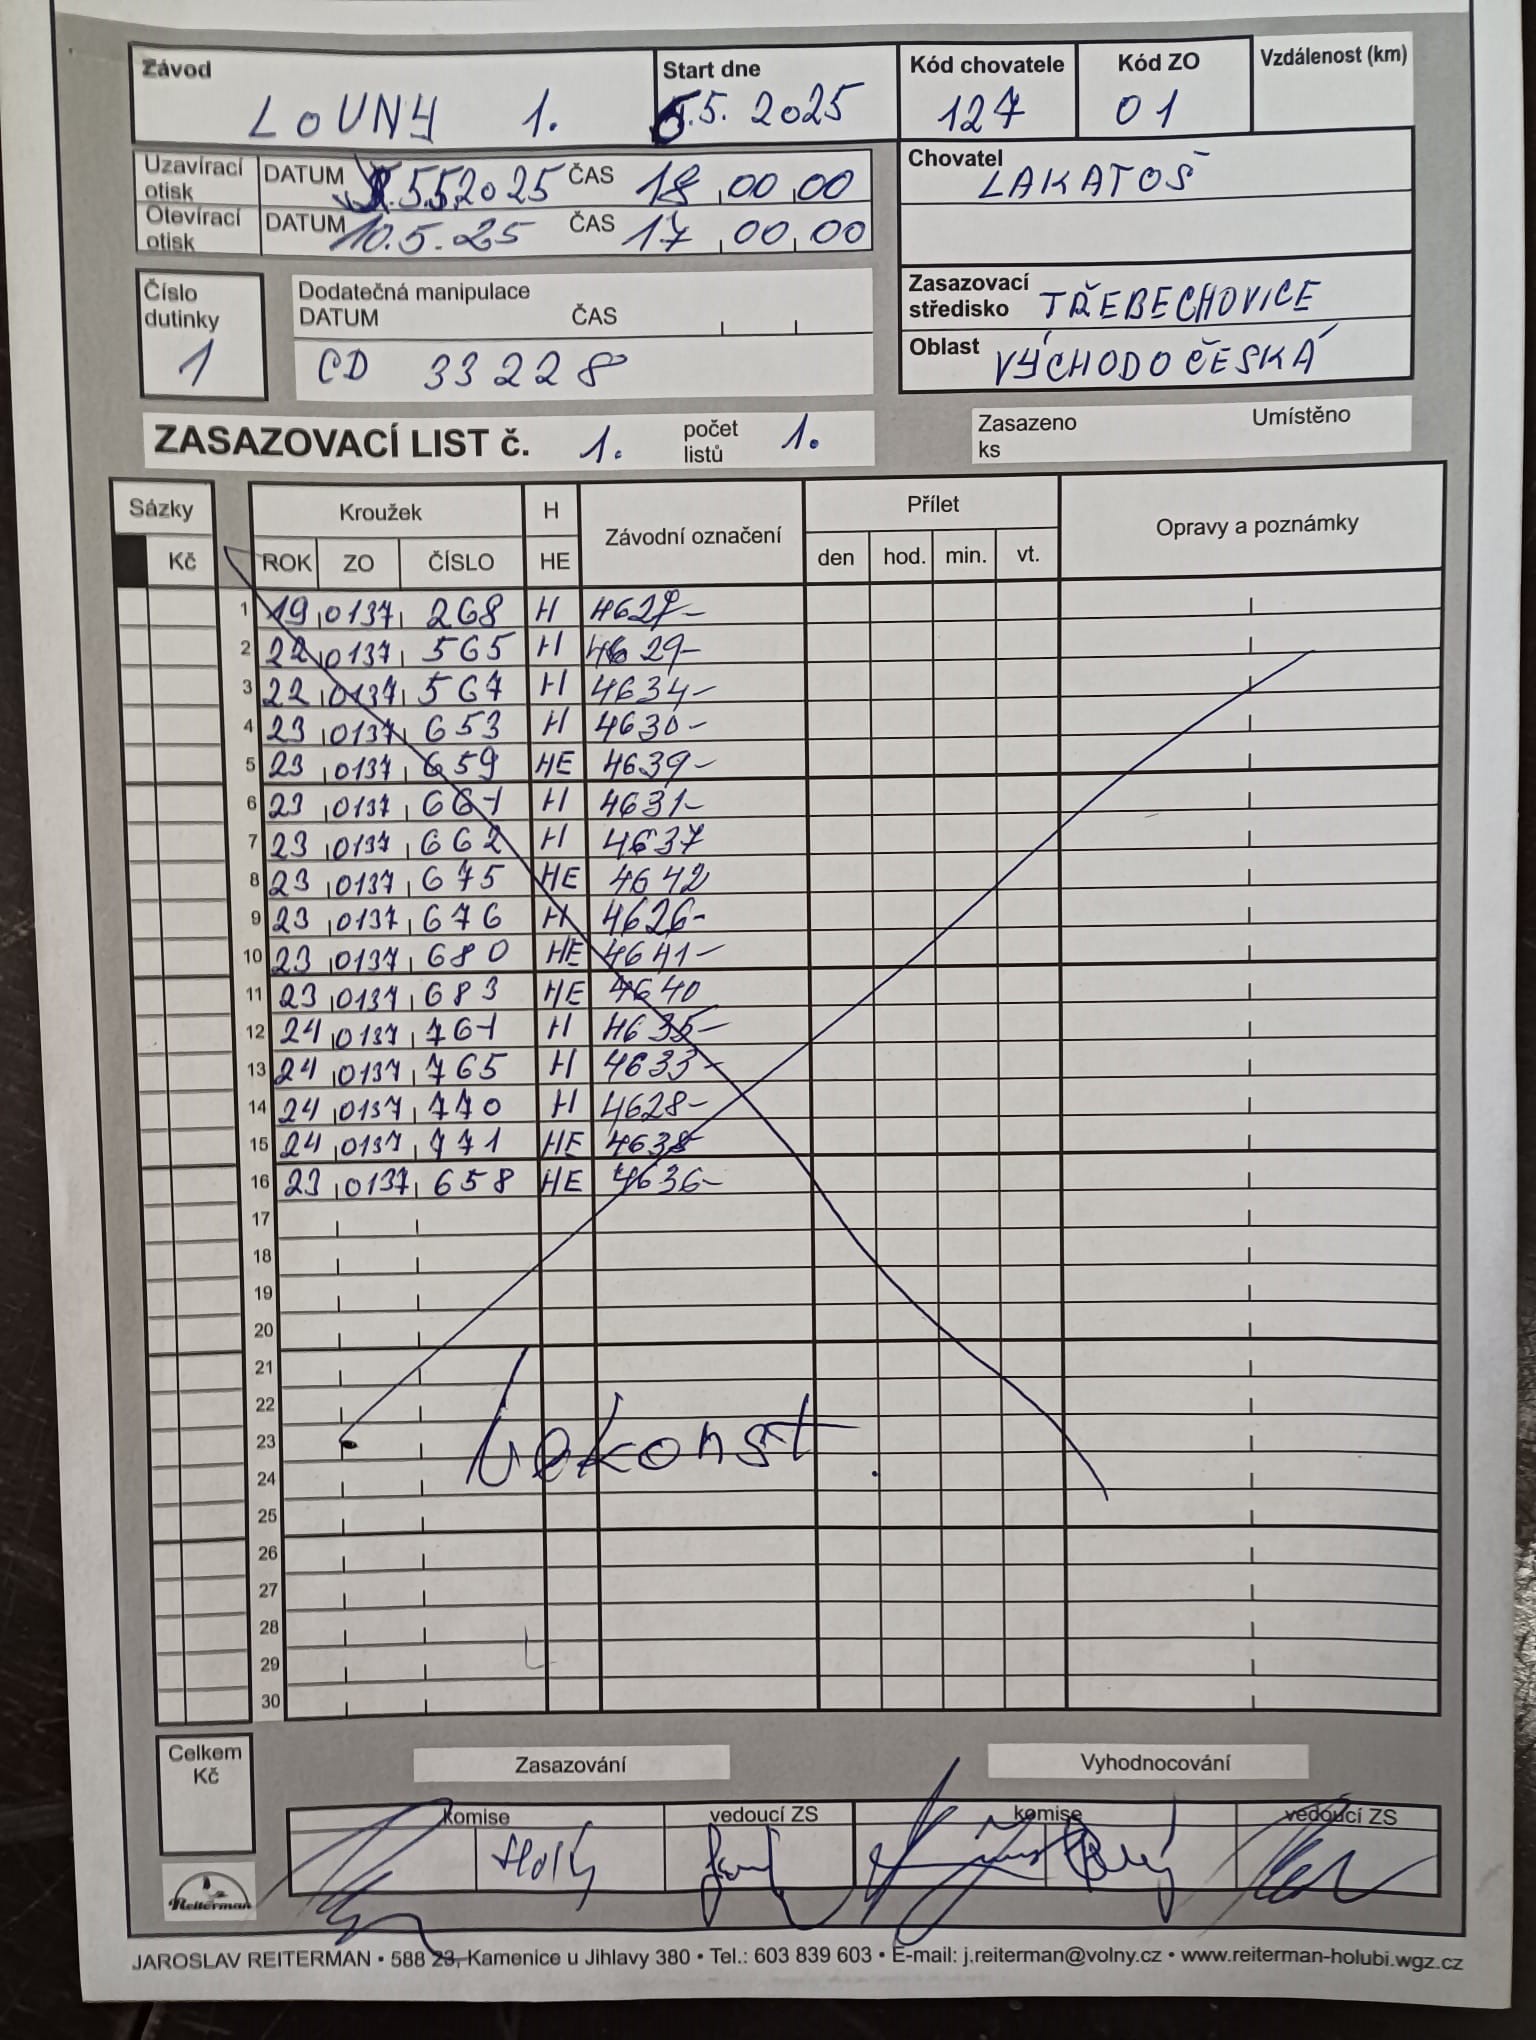 Závod Start dne Kód chovatele Kód ZO Vzdálenost (km)
LOUNY 1. 5.2025 127 01
Uzavírací otisk DATUM 5.5.2025 ČAS 18 00 00
Otevírací otisk DATUM 10.5.25 ČAS 17 00 00
Chovatel LAKATOŠ
Číslo dutinky 1
Dodatečná manipulace
DATUM ČAS
CD 33228
Zasazovací středisko TŘEBECHOVICE
Oblast VÝCHODOČESKÁ
ZASAZOVACÍ LIST č. 1. počet listů 1.
Zasazeno ks Umístěno
Sázky Kroužek H Závodní označení Přílet Opravy a poznámky
Kč ROK ZO ČÍSLO HE den hod. min. vt.
1 19 0137 268 H 4627-
2 22 0137 565 H 4629-
3 22 0137 567 H 4634-
4 23 0137 653 H 4630-
5 23 0137 659 HE 4639-
6 23 0137 661 H 4631-
7 23 0137 662 H 4637
8 23 0137 675 HE 4642
9 23 0137 676 H 4626-
10 23 0137 680 HE 4641-
11 23 0137 683 HE 4640
12 24 0137 761 H 4635-
13 24 0137 765 H 4633-
14 24 0137 770 H 4628-
15 24 0137 771 HE 4638-
16 23 0137 658 HE 4636-
17
18
19
20
21
22
23
24
25
26
27
28
29
30
Celkem Kč
Zasazování Vyhodnocování
komise vedoucí ZS komise vedoucí ZS
Holý
Reiterman
JAROSLAV REITERMAN • 588 23, Kamenice u Jihlavy 380 • Tel.: 603 839 603 • E-mail: j.reiterman@volny.cz • www.reiterman-holubi.wgz.cz